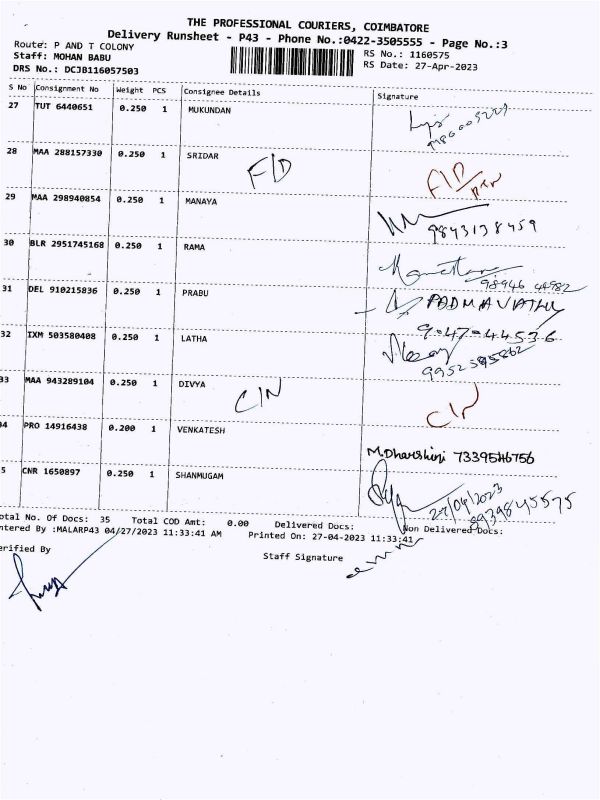 THE PROFESSIONAL COURIERS, COIMBATORE
Delivery Runsheet - P43 - Phone No.:0422-3505555 - Page No.:3
Route: P AND T COLONY RS No.: 1160575
Staff: MOHAN BABU RS Date: 27-Apr-2023
DRS No.: DCJB116057503
S No Consignment No Weight PCS Consignee Details Signature
27 TUT 6440651 0.250 1 MUKUNDAN
28 MAA 288157330 0.250 1 SRIDAR
F/D F/D
29 MAA 298940854 0.250 1 MANAYA
9843138459
30 BLR 2951745168 0.250 1 RAMA
98946 44982
31 DEL 910215836 0.250 1 PRABU PADMAVATHY
9.47.44536
32 IXM 503580408 0.250 1 LATHA
9952595862
33 MAA 943289104 0.250 1 DIVYA
C/N C/N
34 PRO 14916438 0.200 1 VENKATESH
M.Dharshini 7339546756
5 CNR 1650897 0.250 1 SHANMUGAM
27/04/2023
8939845575
otal No. Of Docs: 35 Total COD Amt: 0.00 Delivered Docs: Non Delivered Docs:
ntered By :MALARP43 04/27/2023 11:33:41 AM Printed On: 27-04-2023 11:33:41
erified By Staff Signature